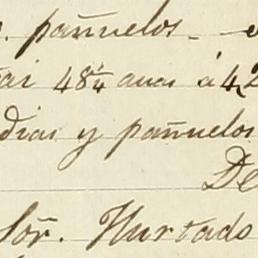 pañuelos - e
48 1/4 anas á 42
dias y pañuelos
De
Sor. Hurtado